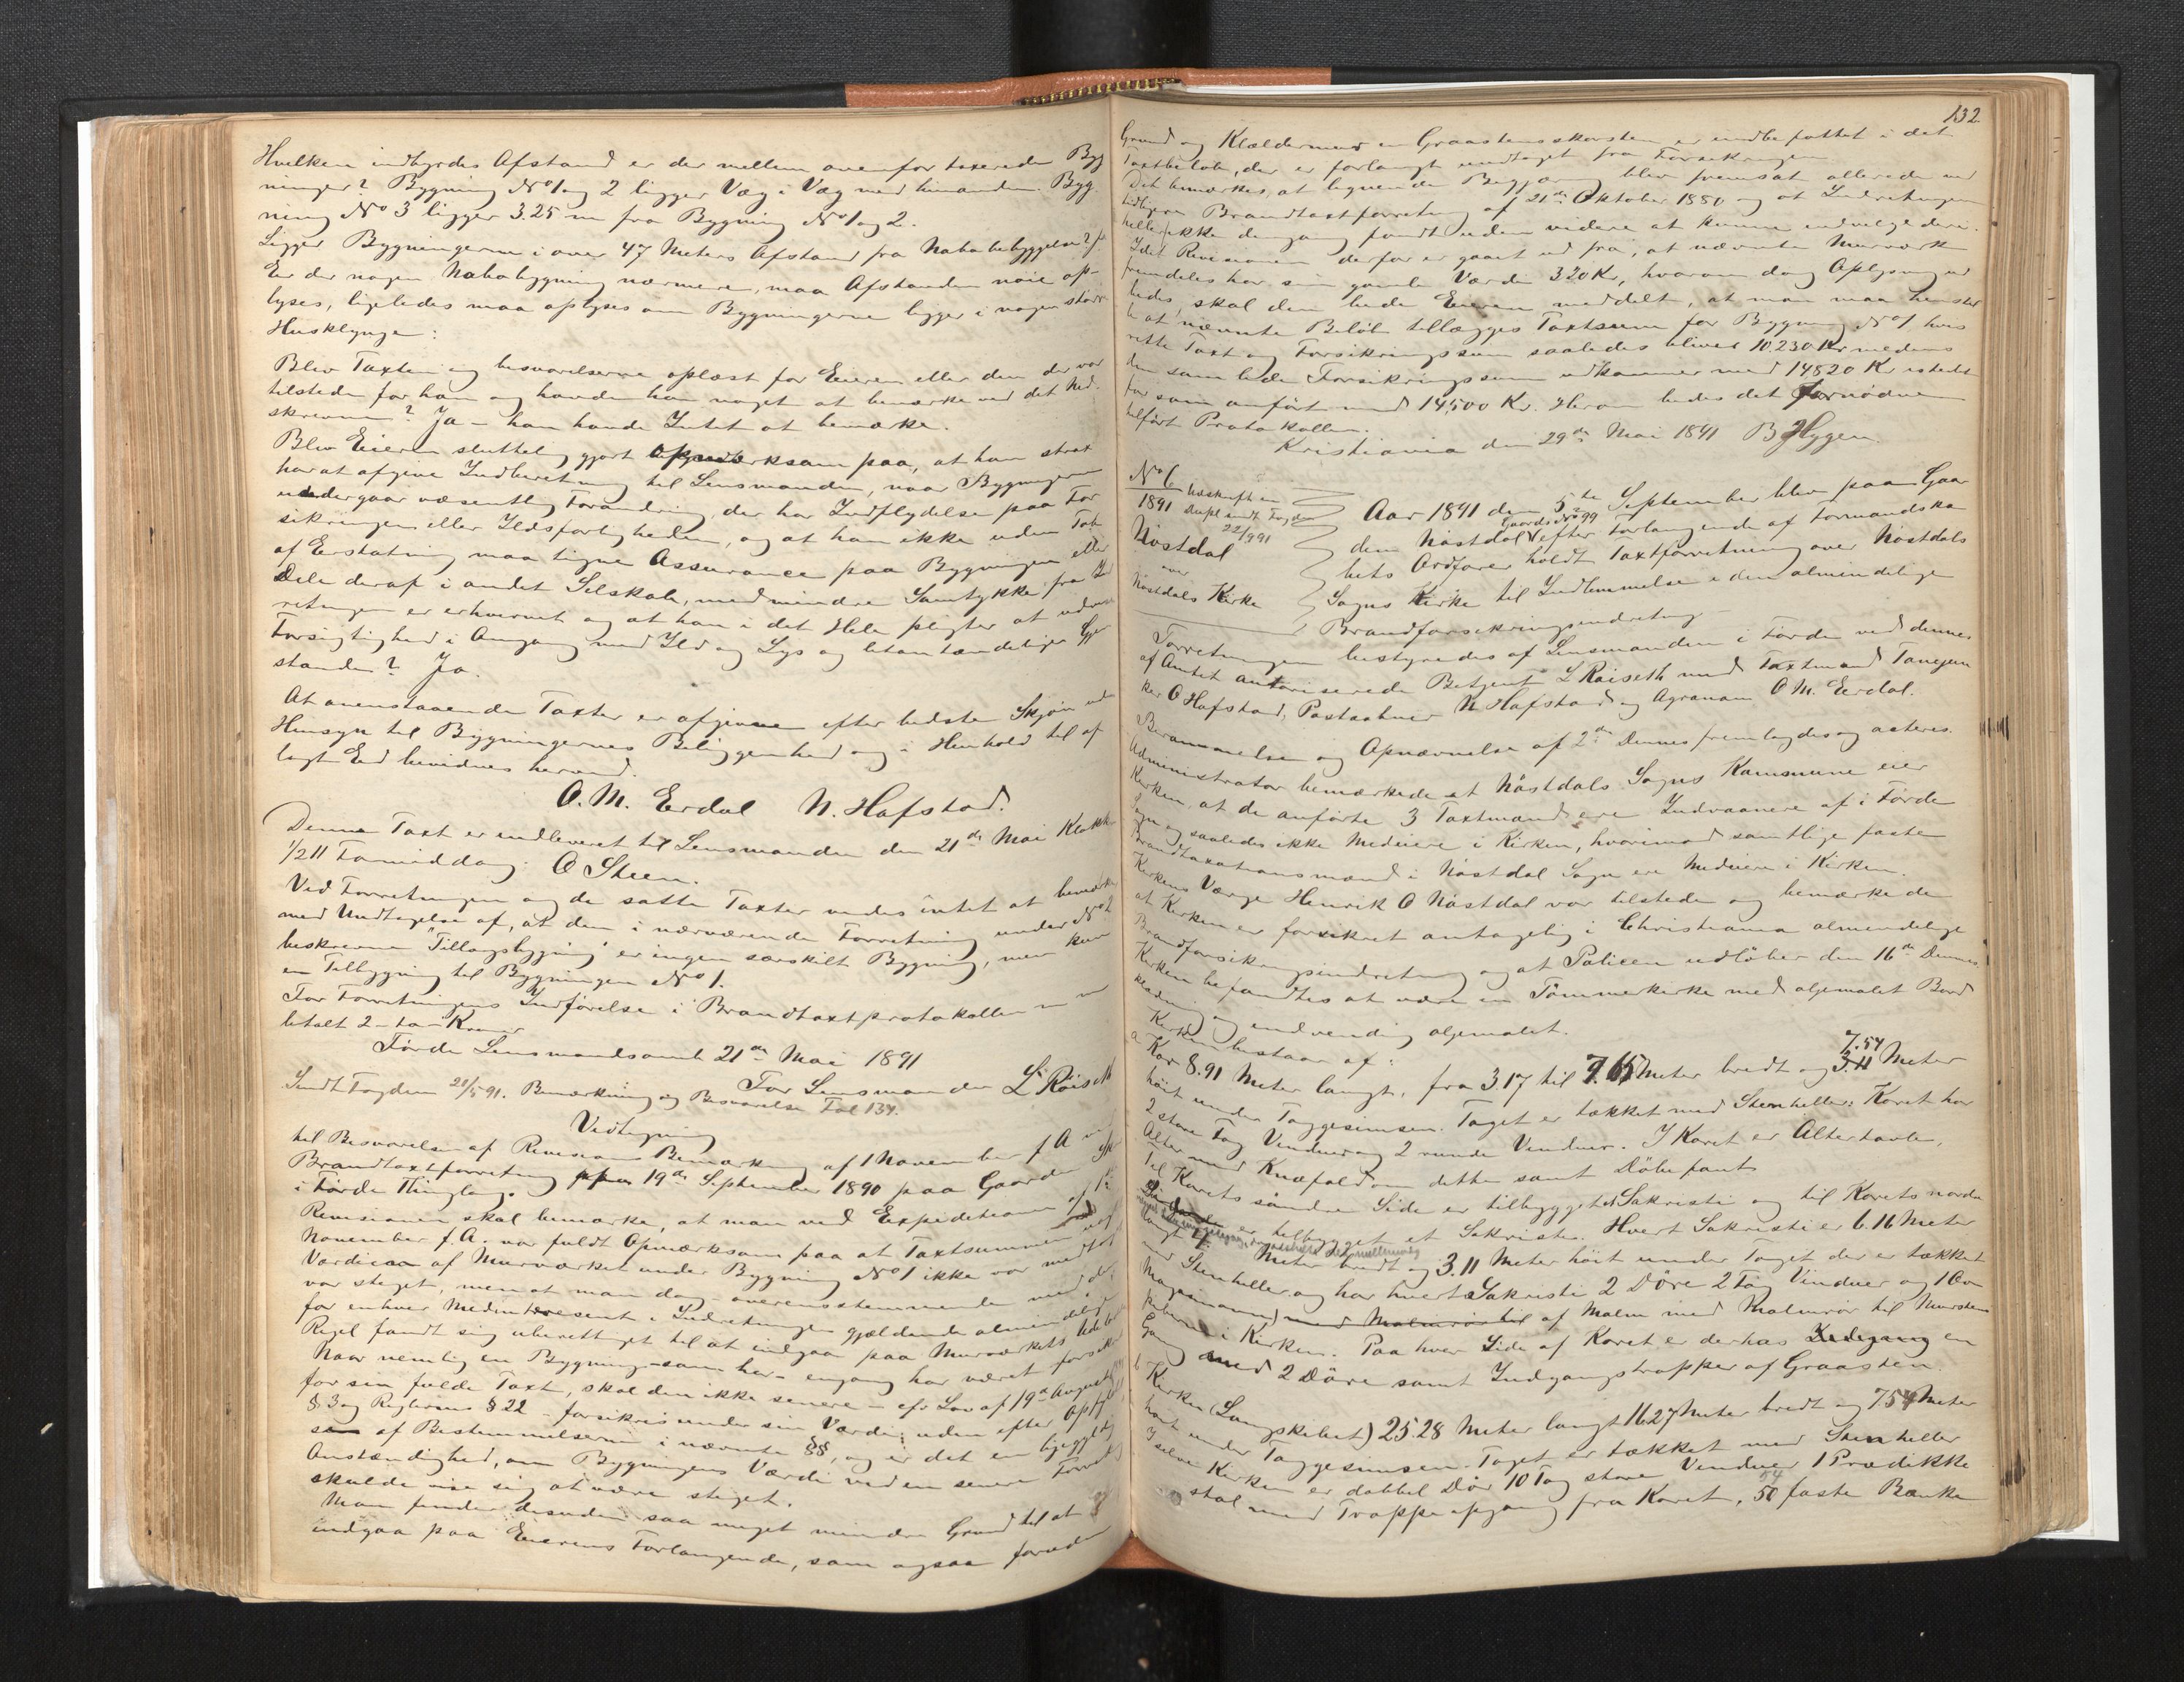 Hvilken indbyrdes Afstand er der mellem ovenfor taxerede Byg
ninger? Bygning No 1 og 2 ligger Væg i Væg med hinanden. Byg-
ning No 3 ligger 3.25 m fra Bygning No 1 og 2.
Ligger Bygningerne i over 47 Meters Afstand fra Nabobebyggelse?
Er der nogen Nabobygning nærmere, maa Afstanden nöie op-
lyses, ligeledes maa oplyses om Bygningerne ligger i nogen större
Husklynge:
Blev Taxten og besvarelserne oplæst for Eieren eller den der var
tilstede for ham og havde han noget at bemærke ved det Ned-
skrevne? Ja – han havde Intet at bemærke.
Blev Eieren sluttelig gjort opmærksom paa, at han strax
har at afgive Indberetning til Lensmanden, naar Bygningerne
undergaar væsentlig Forandring, der har Indflydelse paa For
sikringen eller Ildsfarligheden, og at han ikke uden Tab
af Erstatning maa tegne Assurance paa Bygningen eller
Dele deraf i andet Selskab, medmindre Samtykke fra Ind
retningen er erhvervet og at han i det Hele pligter at udvise
Forsigtighed i Omgang med Ild og Lys og letantændelige Gjen
stande? Ja.
At ovenstaaende Taxter er afgivne efter bedste Skjön uden
Hensyn til Bygningernes Beliggenhed og i Henhold til af
lagt Ed bevidnes herved.
O. M. Erdal N. Hafstad.
Denne Taxt er indleveret til Lensmanden den 21de Mai Klokken
1/2 11 Formiddag. O Steen.
Ved Forretningen og de satte Taxter vides intet at bemærke
med Undtagelse af, at den i nærværende Forretning under No 2
beskrevne "Tillægsbygning" er ingen særskilt Bygning, men kun
en Tilbygning til Bygningen No 1.
For Forretningens Indförelse i Brandtaxtprotokollen
betalt 2 – to – Kroner
Förde Lensmandsomb 21de Mai 1891
For Lensmanden L Röiseth
Sendt Fogden 21/5 91. Bemærkning og Besvarelse Fol 134.
Vedtegning
til Besvarelse af Revisions Bemærkning af 1 November f A
Brandtaxtforretning 19de September 1890 paa Gaarden
i Förde Thinglag.
Revisionen skal bemærke, at man ved Expeditionen af 1ste
November f. A. var fuldt Opmærksom paa at Taxtsummen
Værdien af Murværket under Bygning No 1 ikke var medtaget
var steget, men at man dog overensstemmende med de
for enhver Medinteressent i Indretningen gjældende almindelige
Regel fandt sig uberettiget til at indgaa paa Murværkets Udeladelse
Naar nemlig en Bygning – som her – engang har været forsikret
for sin fulde Taxt, skal den ikke senere – cfr Lov af 19de August
§ 3 og Reglerens § 22 – forsikres under sin Værdi, uden efter Opfyldel
sen af Bestemmelserne i nævnte §§, og er det en ligegyldig
Omstændighed, om Bygningens Værdi ved en senere Forretning
skulde vise sig at være steget.
Man finder desuden saa meget mindre Grund til at
indgaa paa Eierens Forlangende, som ogsaa foruden
132
Grund og Kjældermur en Graastensskorsten er indbefattet i det
Taxtbelöb, der er forlangt undtaget fra Forsikringen.
Det bemærkes, at lignende Begjæring blev fremsat allerede ved
tidligere Brandtaxtforretning af 21de Oktober 1880 og at Indretningen
heller ikke dengang fandt uden videre at kunne indvilge deri.
Idet Revisionen derfor er gaaet ud fra, at nævnte Murværk
fremdeles har sin gamle Værdi 320 Kr, hvorom dog Oplysning ud
bedes, skal den bede Eieren meddelt, at man maa henstil
le at nævnte Belöb tillægges Taxtsum for Bygning No 1 hvis
rette Taxt og Forsikringssum saaledes bliver 10,230 Kr medens
den samlede Forsikringssum udkommer med 14820 Kr istedet
for som anfört med 14,500 Kr. Herom bedes det fornödne
tilfört Protokollen.
Kristiania den 29de Mai 1891 B Hygen.
No 6
1891 Udskrift in
Dupl sendt Fogden
22/9 91
Nöstdal
over
Nöstdals Kirke
Aar 1891 den 5te September blev paa Gaar
den Nöstdal Gaards No 99 efter Forlangende af Formandska
bets Ordförer holdt Taxtforretning over Nöstdals
Sogns Kirke til Indlemmelse i den almindelige
Brandforsikringsindretning
Forretningen bestyredes af Lensmanden i Förde ved dennes
af Amtet autoriserede Betjent L Röiseth med Taxtmænd
O Hafstad, Postaabner N Hafstad og Agronom O. M. Erdal.
Berammelse og Opnævnelse af 2den Dennes fremlagdes og acteres.
Administrator bemærkede at Nöstdals Sogns Kommune eier
Kirken, at de anförte 3 Taxtmænd ere Indvaanere af i Förde
Sogn og saaledes ikke Medeiere i Kirken, hvorimod samtlige faste
Brandtaxationsmænd i Nöstdal Sogn ere Medeiere i Kirken.
Kirkens Værge Henrik O Nöstdal var tilstede og bemærkede
at Kirken er forsikret antagelig i Christiania almindelige
Brandforsikringsindretning og at Policen udlöber den 16de Dennes.
Kirken befandtes at være en Tömmerkirke med oljemalet Bord
klædning og indvendig oljemalet.
Kirken bestaar af:
a Kor 8.91 Meter langt, fra 3.17 til 9.65 Meter bredt og 3.11 7.54 Meter
höit under Taggesimsen. Taget er tækket med Stenheller. Koret har
2 store Fag Vinduer og 2 runde Vinduer. I Koret er Altertavle,
Alter med Knæfald om dette samt Döbefont
Til Korets söndre Side er tilbygget et Sakristi og til Korets nordre
Side er tilbygget et Sakristi. Hvert Sakristi er 6.16 Meter
langt 4. Meter bredt og 3.11 Meter höit under Taget der er tækket
med Stenheller og har hvert Sakristi 2 Döre 2 Fag Vinduer og 1 Ovn
(Magasinovn) med Malmrör til af Malm med Malmrör til Mursten
piberne i Kirken. Paa hver Side af Koret er derhos Indgang en
Gang med 2 Döre samt Indgangstrapper af Graasten.
b Kirken (Langskibet) 25.28 Meter langt 16.27 Meter bredt og 7.54 Meter
höit under Taggesimsen. Taget er tækket med Stenheller
I selve Kirken er dobbel Dör 10 Fag store Vinduer 1 Prædikke
stol med Trappeopgang fra Koret, 50 54 faste Bænke